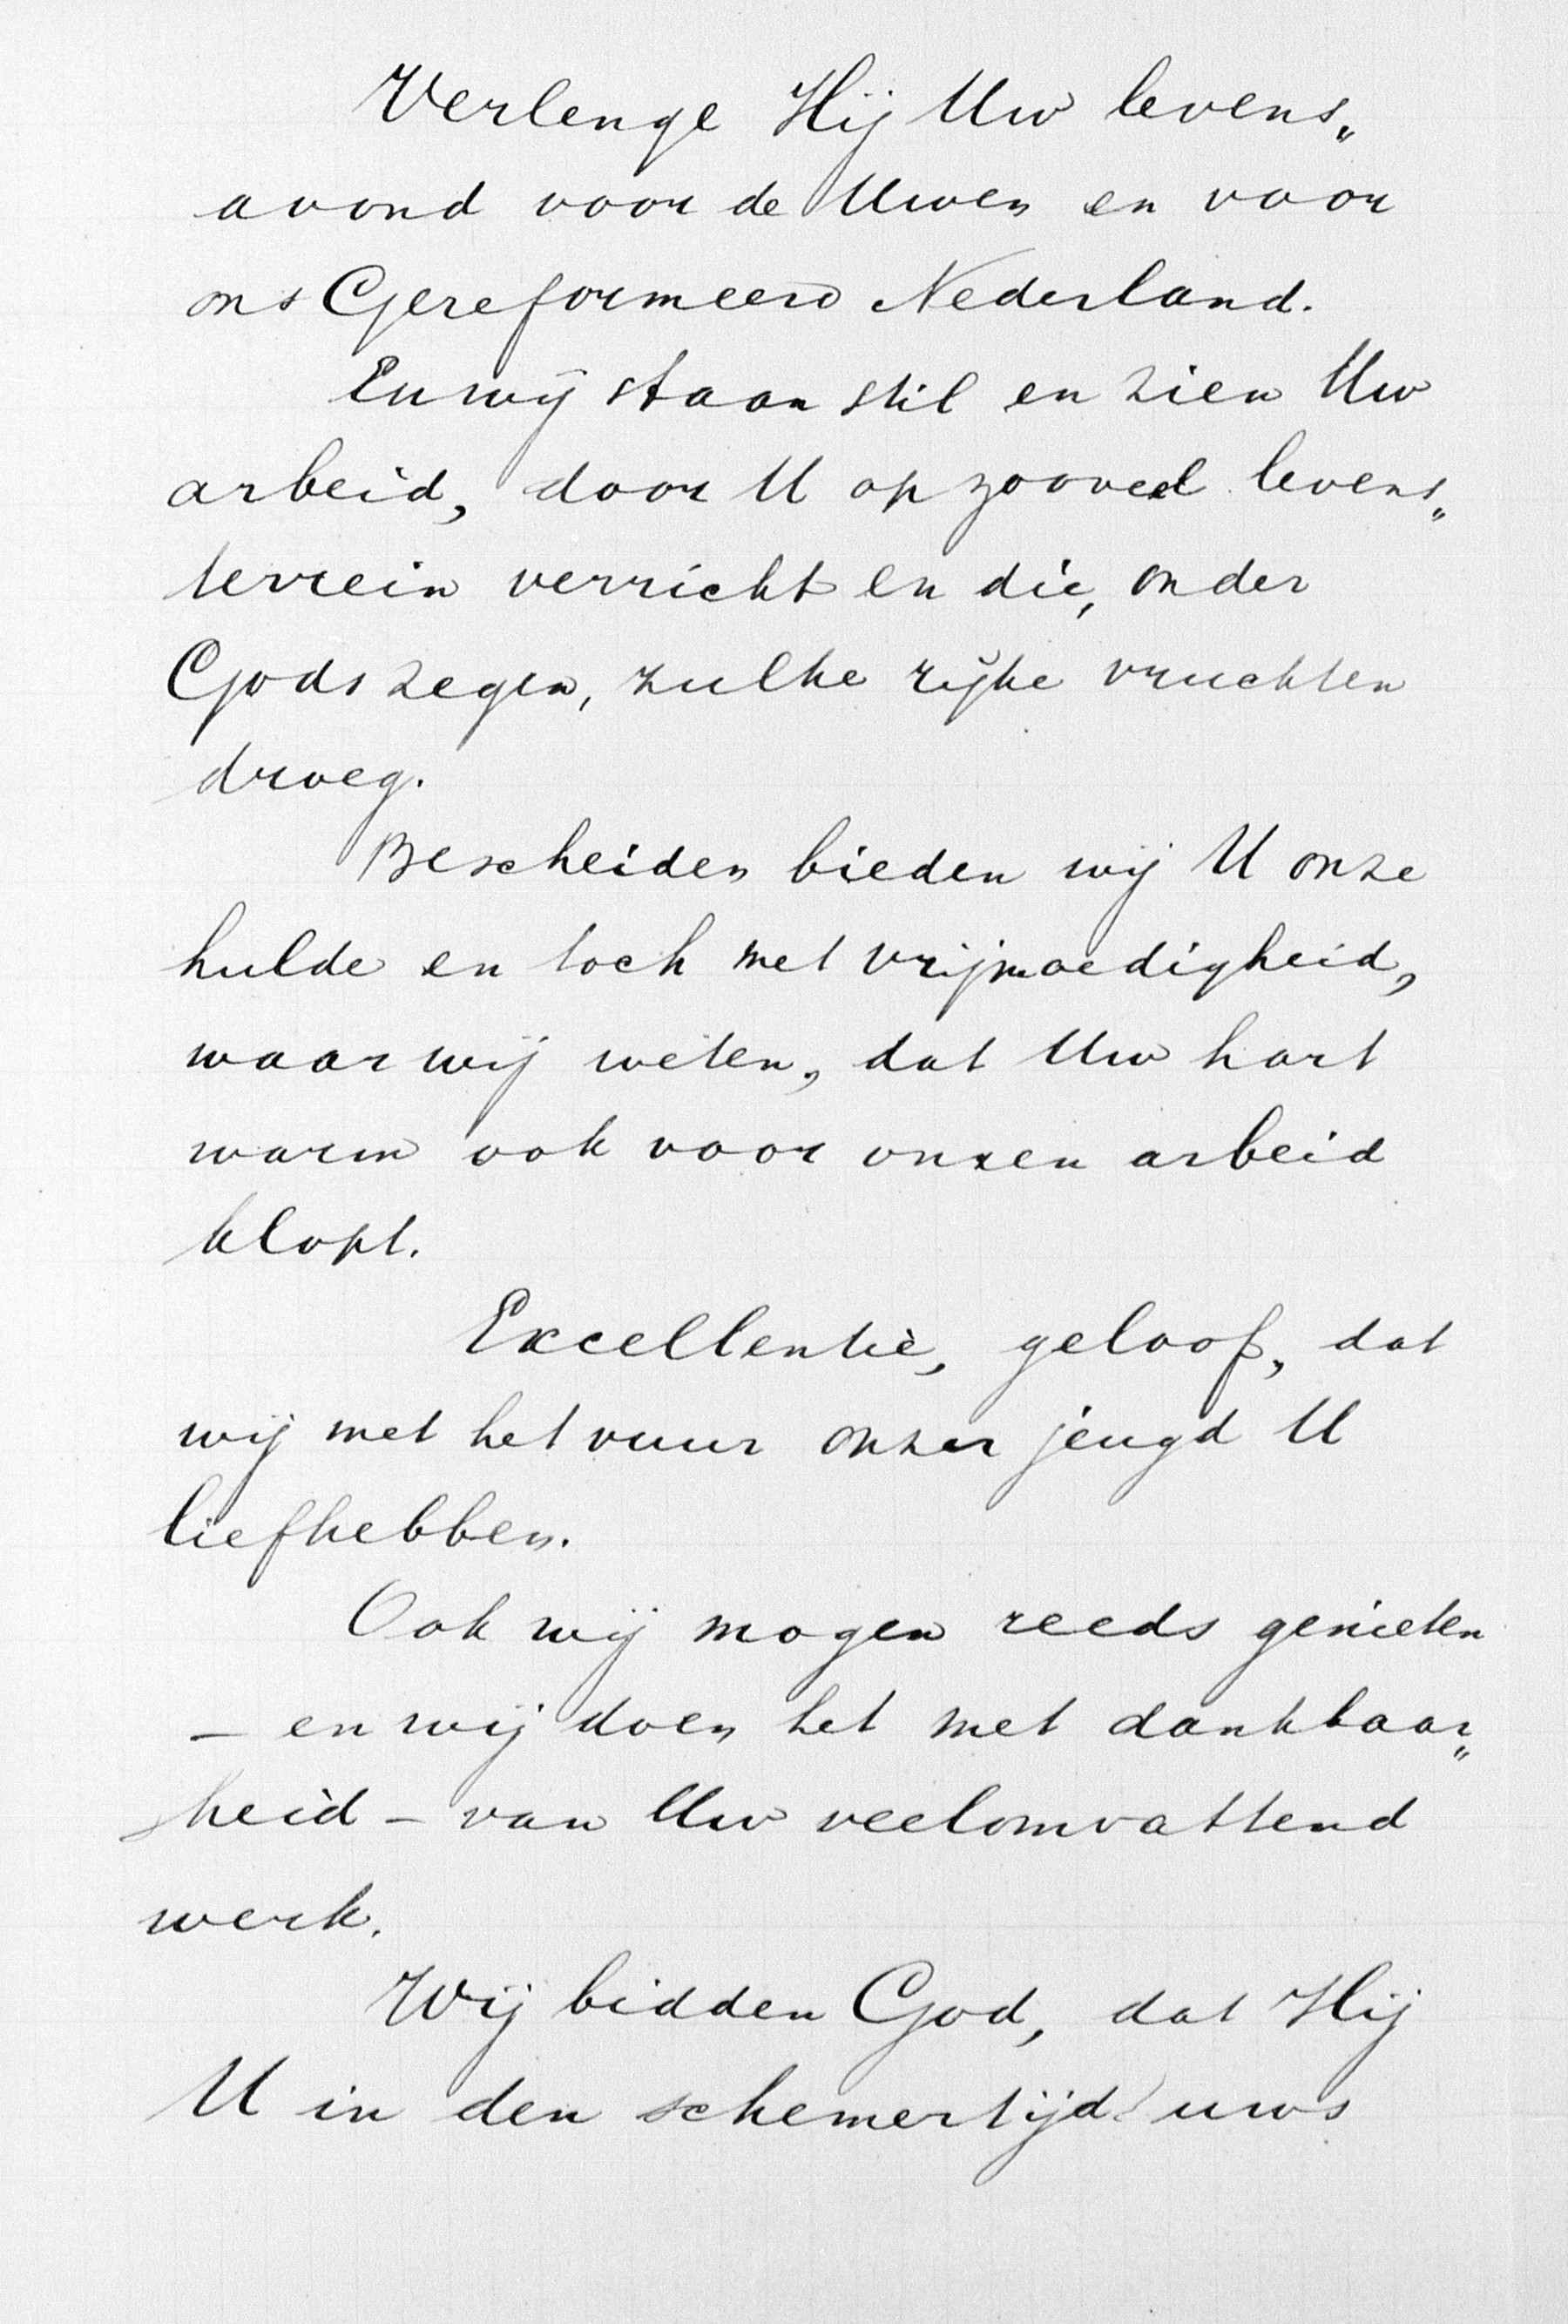 Verlenge Hij Uw levens„
avond voor de Uwen en voor
ons Gereformeerd Nederland.
En wij staan stil en zien Uw
arbeid, door U op zooveel levens„
terrein verricht en die, onder
Gods zegen, zulke rijke vruchten
droeg.
Bescheiden bieden wij U onze
hulde en toch met vrijmoedigheid,
waar wij weten, dat Uw hart
warm ook voor onzen arbeid
klopt.
Excellentie, geloof, dat
wij met het vuur onzer jeugd U
liefhebben.
Ook wij mogen reeds genieten
– en wij doen het met dankbaar„
heid – van Uw veelomvattend
werk.
Wij bidden God, dat Hij
U in den schemertijd uws